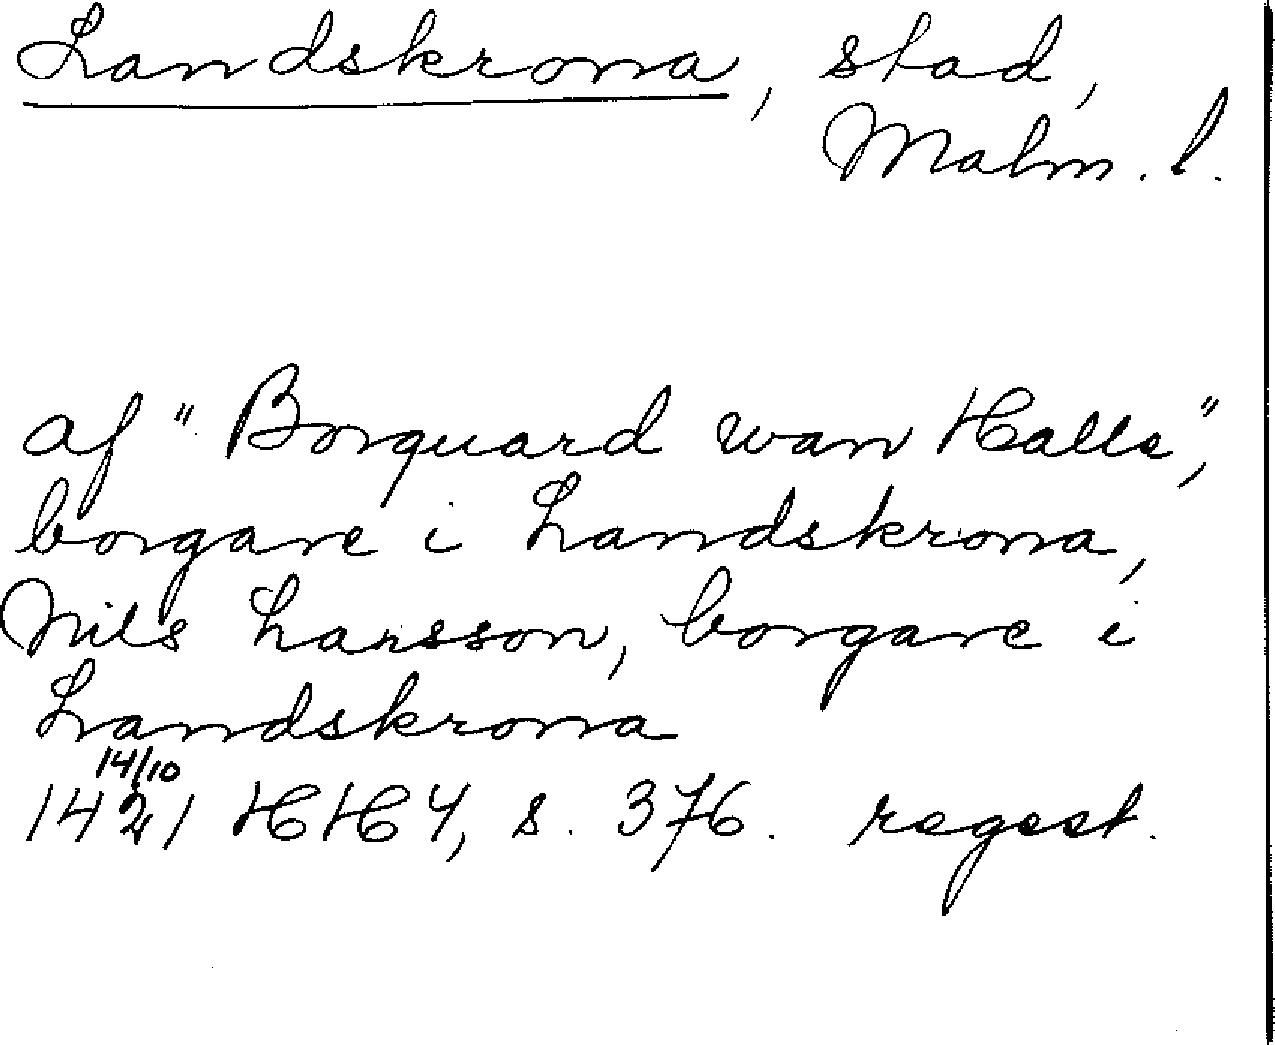 Landskrona, stad,
Malm. l.
af "Borquard wan Halle",
borgare i Landskrona,
Nils Larsson, borgare i
Landskrona
14/10
1421 HH4, s. 376. regest.